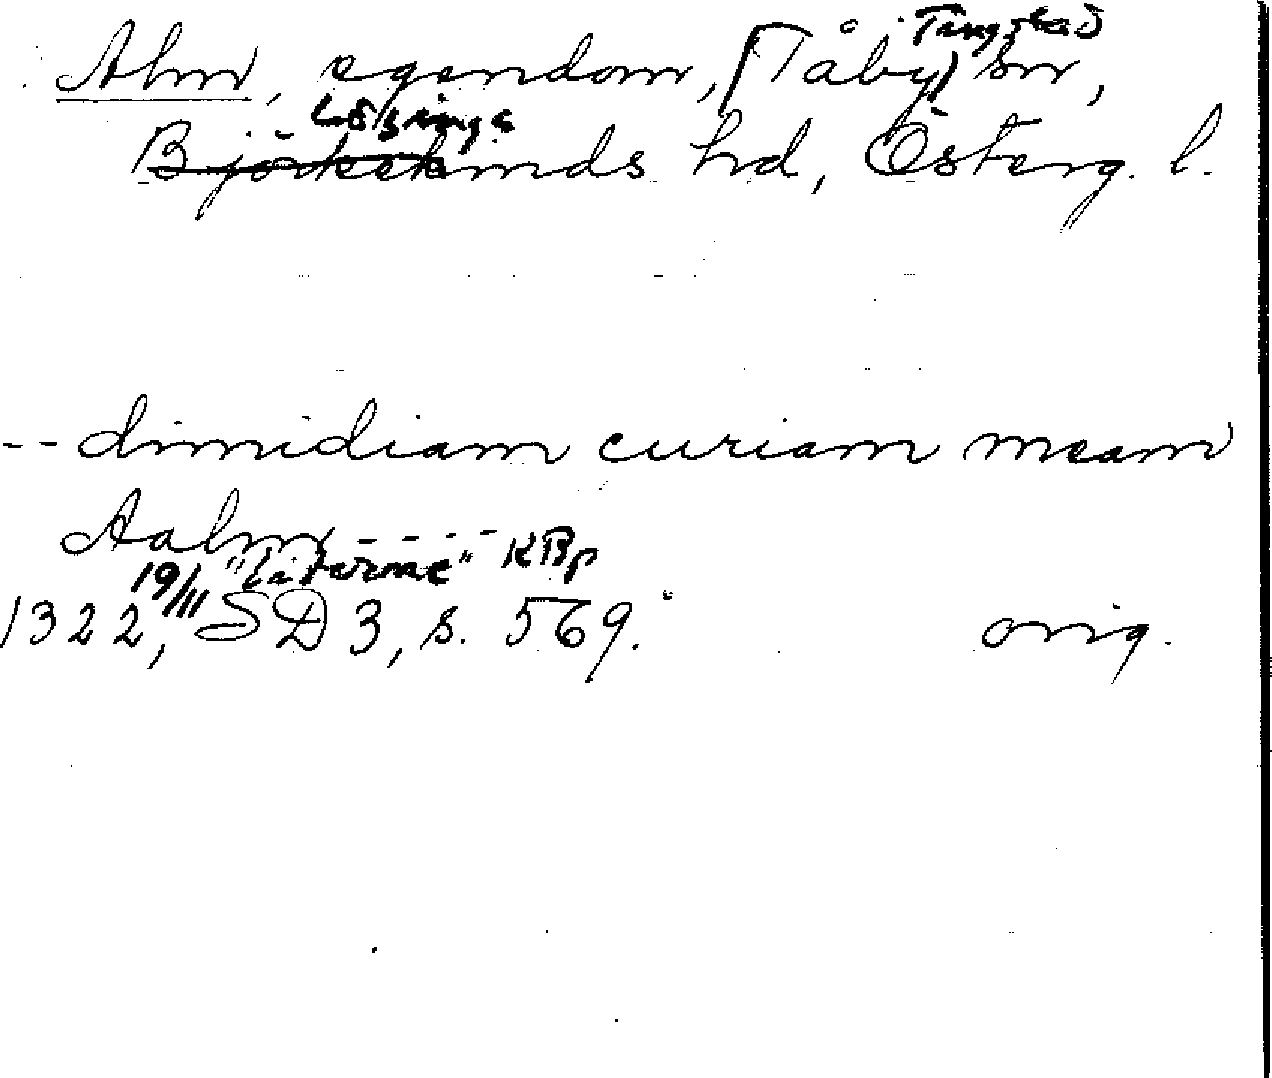 Tingstad
Alm, egendom, (Tåby) sn,
Lösings
Björkekinds hd, Österg. l.
-- dimidiam curiam meam
Aalm - - - -
19/11 KBp
1322, SD 3, s. 569. orig.